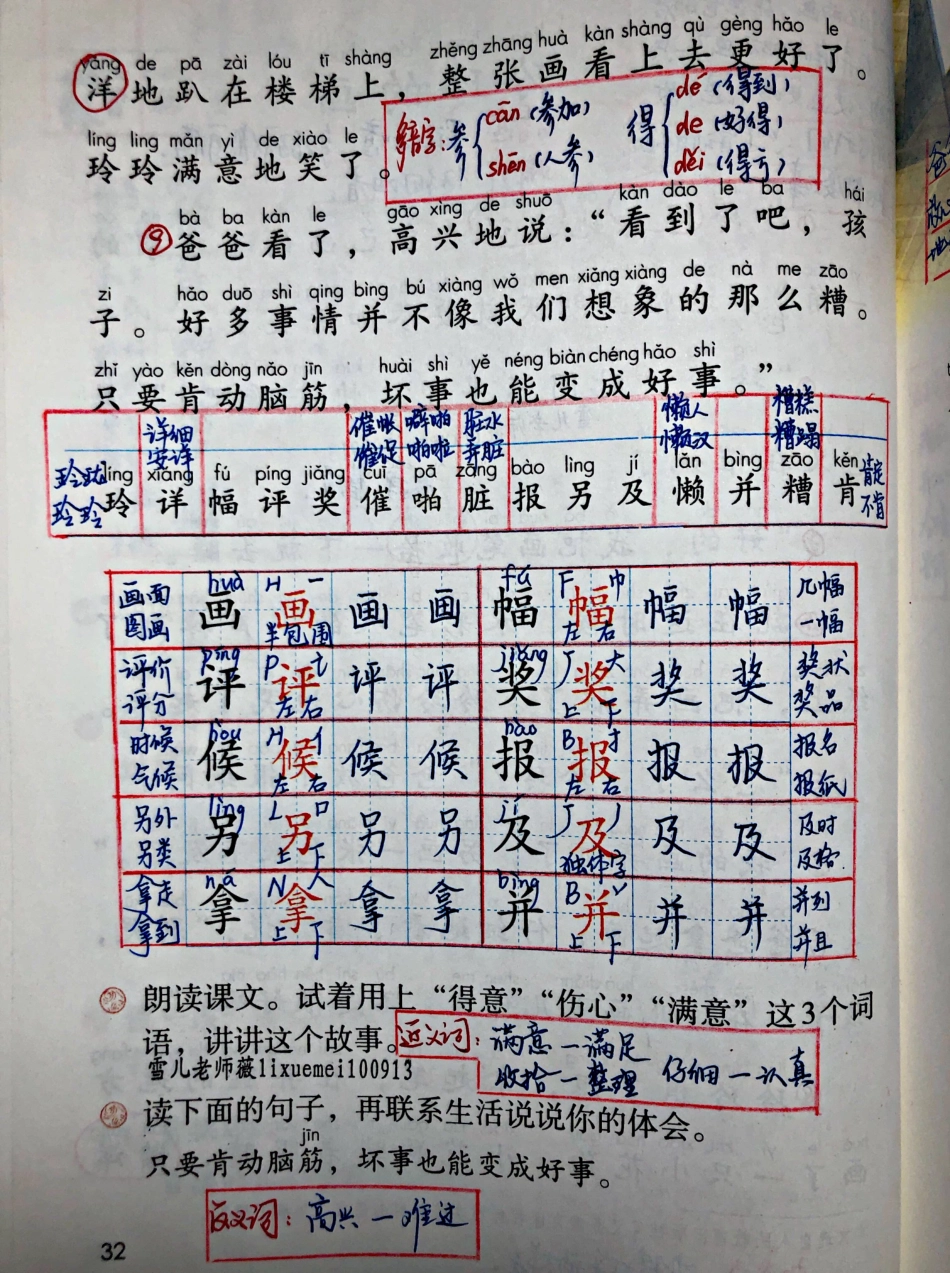 yáng de pā zài lóu tī shàng zhěng zhāng huà kàn shàng qù gèng hǎo le
洋地趴在楼梯上，整张画看上去更好了。
多音字：参 cān（参加） shēn（人参） 得 dé（得到） de（好得） děi（得亏）
líng ling mǎn yì de xiào le
玲玲满意地笑了。
bà ba kàn le gāo xìng de shuō kàn dào le ba hái
⑨爸爸看了，高兴地说：“看到了吧，孩
zi hǎo duō shì qing bìng bú xiàng wǒ men xiǎng xiàng de nà me zāo
子。好多事情并不像我们想象的那么糟。
zhǐ yào kěn dòng nǎo jīn huài shì yě néng biàn chéng hǎo shì
只要肯动脑筋，坏事也能变成好事。”
详细 催账 噼啪 脏水 懒人 糟糕
安详 催促 啪啦 弄脏 懒汉 糟蹋
玲珑 líng xiáng fú píng jiǎng cuī pā zāng bào lìng jí lǎn bìng zāo kěn 肯定
玲玲 玲 详 幅 评 奖 催 啪 脏 报 另 及 懒 并 糟 肯 不肯
画面 huà H 一 fú F 巾 几幅
图画 画 画 画 画 幅 幅 幅 幅 一幅
半包围 左右
评价 píng P 讠 jiǎng J 大 奖状
评分 评 评 评 评 奖 奖 奖 奖 奖品
左右 上下
时候 hòu H 亻 bào B 扌 报名
气候 候 候 候 候 报 报 报 报 报纸
左右 左右
另外 lìng L 口 jí J 丿 及时
另类 另 另 另 另 及 及 及 及 及格
上下 独体字
拿走 ná N 人 bìng B 丷 并列
拿到 拿 拿 拿 拿 并 并 并 并 并且
上下 上下
朗读课文。试着用上“得意”“伤心”“满意”这3个词
语，讲讲这个故事。
近义词：满意—满足
收拾—整理 仔细—认真
雪儿老师薇lixuemei100913
读下面的句子，再联系生活说说你的体会。
jīn
只要肯动脑筋，坏事也能变成好事。
反义词：高兴—难过
32